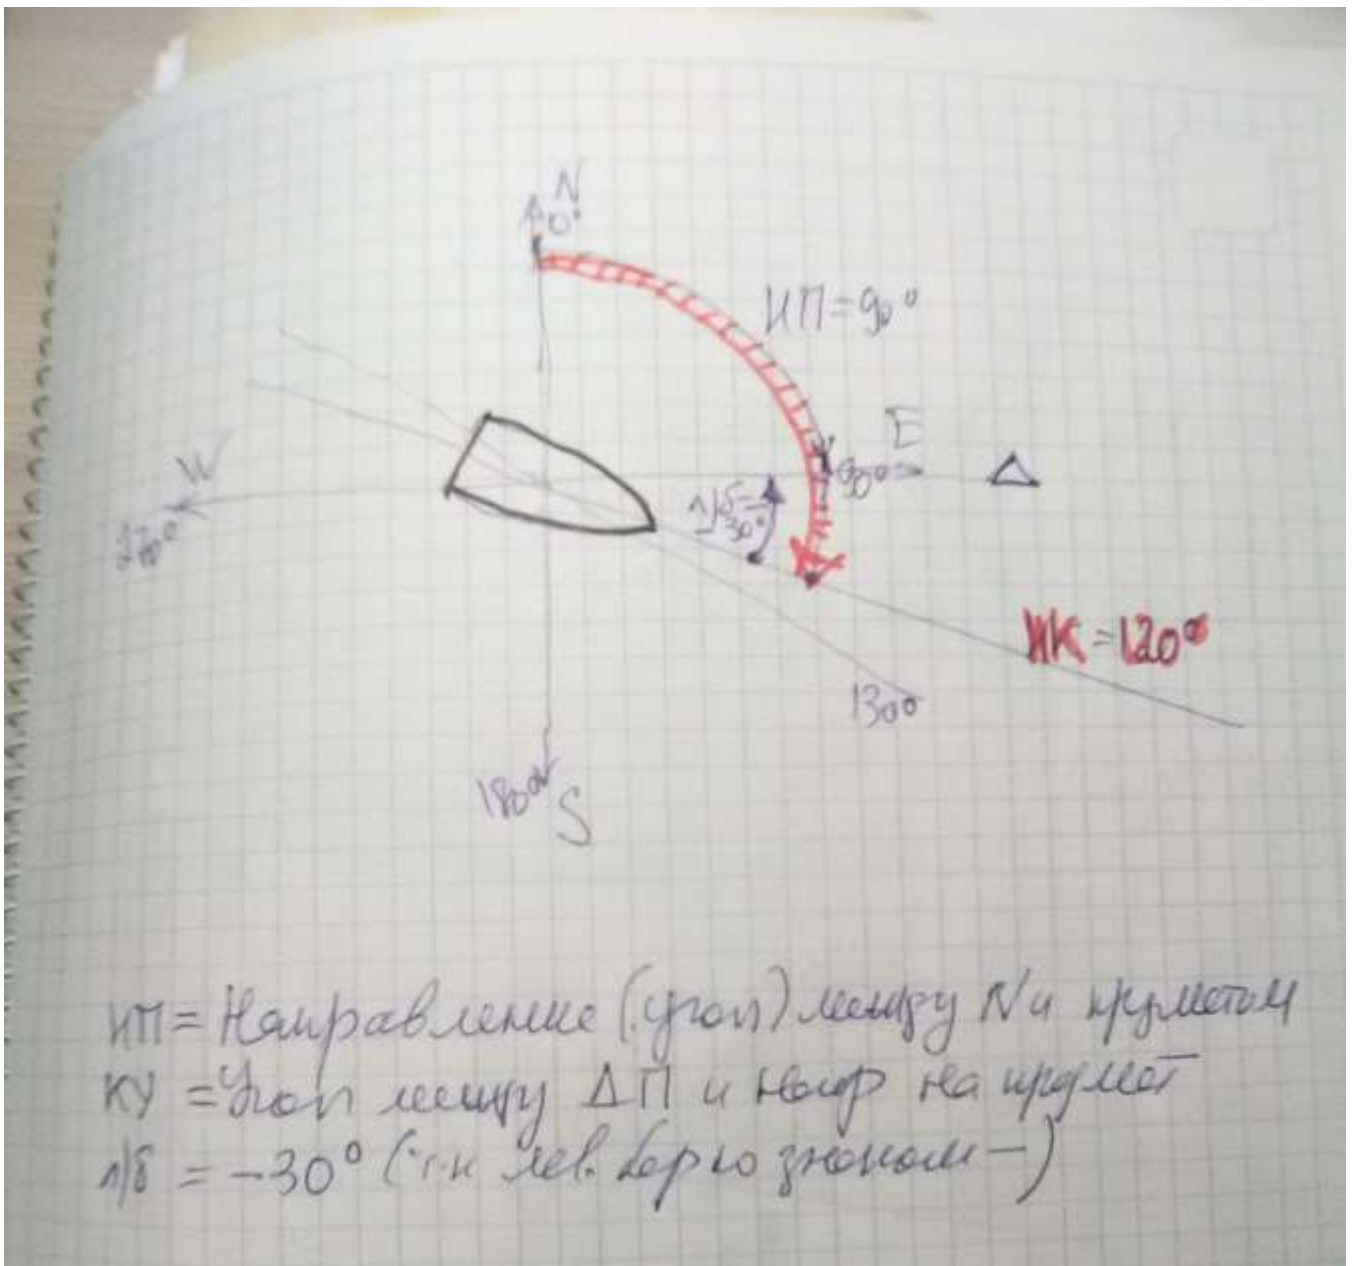 N
0°
ИП=90°
E
90°
W
270°
л/б=
30°
ИК=120°
130°
180°
S
ИП = Направление (угол) между N и предметом
КУ = Угол между ДП и напр на предмет
л/б = -30° (т.к лев. борт со знаком -)